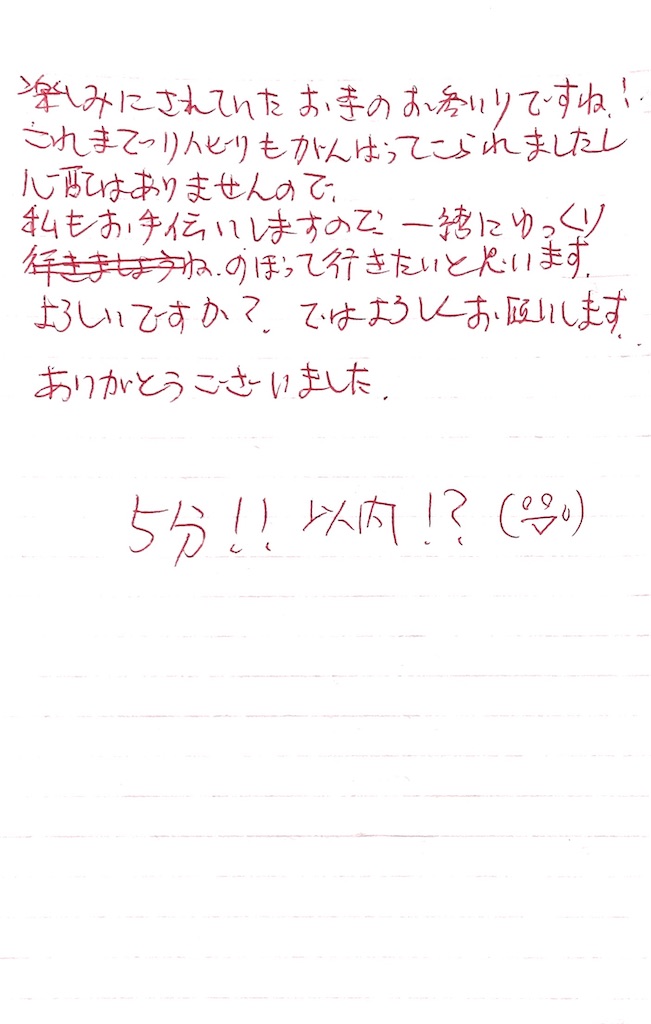 楽しみにされていたお墓のお参りですね!
これまでリハビリもがんばってこられましたし
心配はありませんので、
私もお手伝いしますので 一緒にゆっくり
行きましょうね.のぼって行きたいと思います.
よろしいですか?.ではよろしくお願いします.
ありがとうございました.
5分!! 以内!?